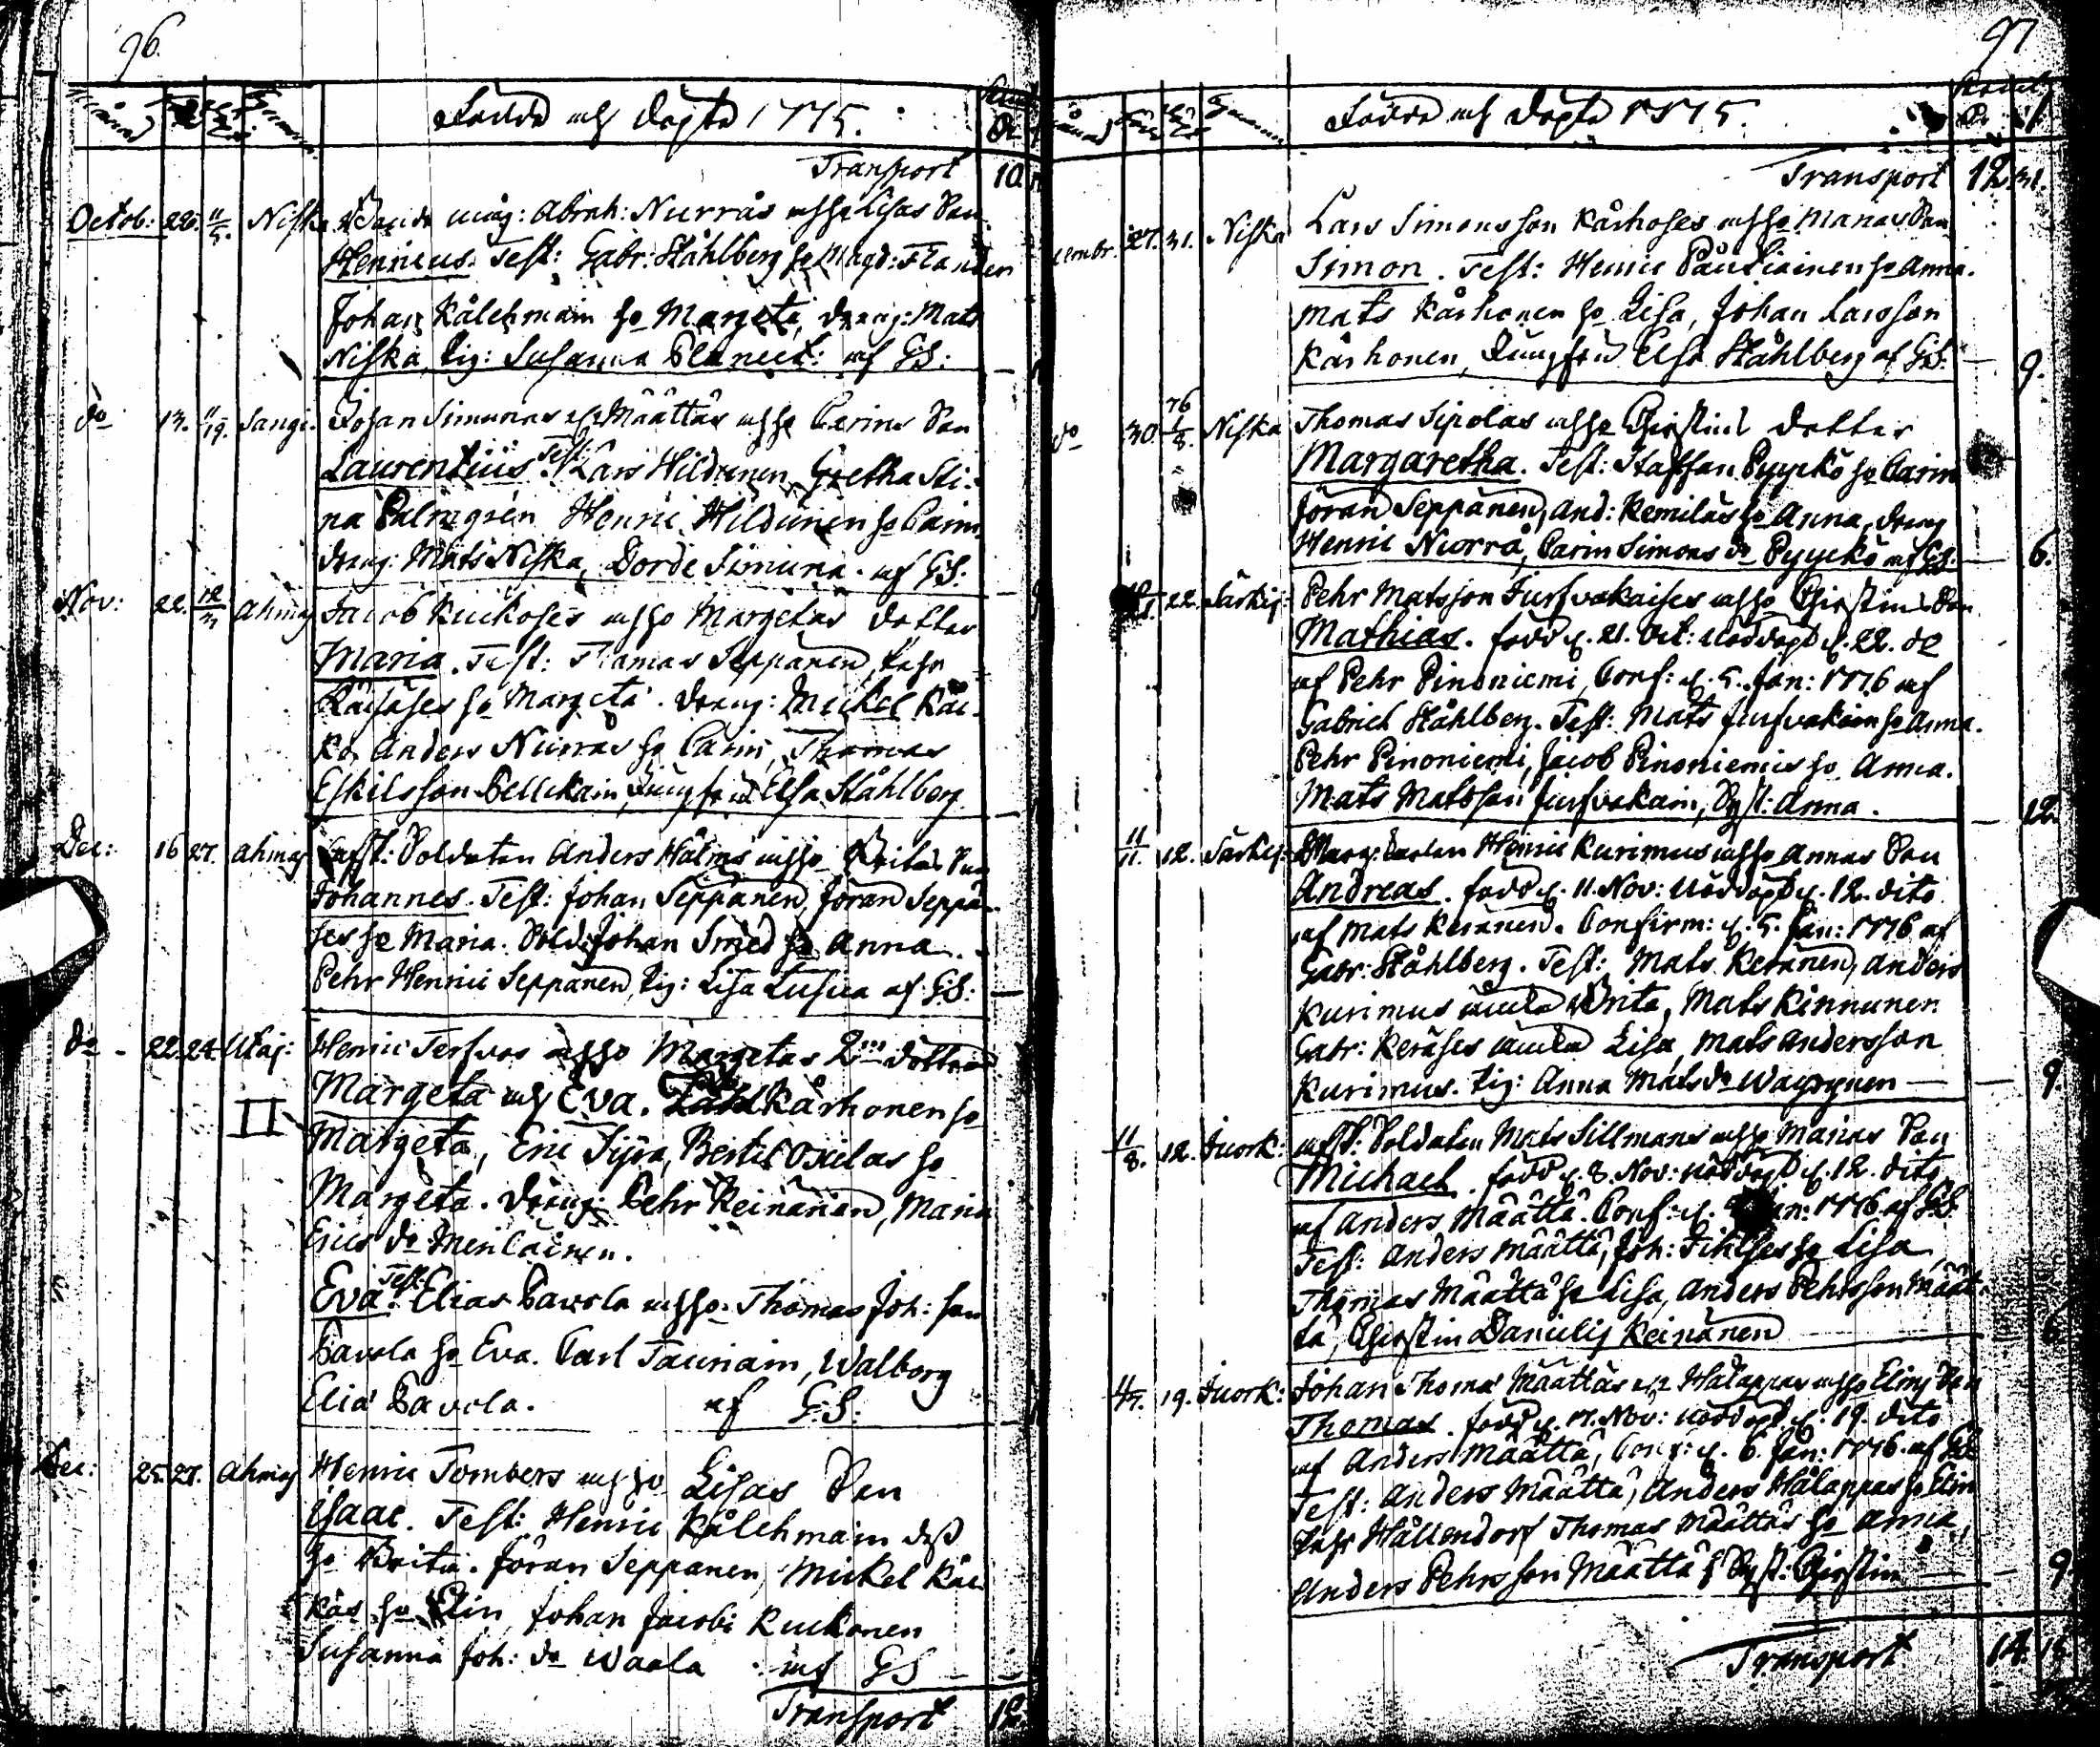 96.
Månad
Födde och döpte 1775.
Transport 10.
Octob: 22. 11/5. Niska Bonde måg: Abrah: Nurräs och ho Lisas Son
Henricus. Test: Gabr: Ståhlberg ho Magd: Flander
Johan Kålehmain ho Margeta, dräng: Mats
Niska, Pig: Susanna Planeet: af G:S:
do 13. 11/19. Sangi. Johan Simunas Määttäs och ho Carins Son
Laurentius. Test: Lars Hildunen, Gretha Sti-
na Palmgrén Henric Hildunen ho Carin,
dräng Mats Niska, Dorde Simuna. af G:S:
Nov: 22. 12/3 Ahmas Jacob Kuckoses och ho Margetas dotter
Maria. Test: Thomas Seppänen, Pehr
Räisäses ho Margeta. dräng: Mickel Käc-
kö, Anders Nurräs ho Carin, Thomas
Eskilsson Pellikain, Jungfru Elsa Ståhlberg
Dec: 16 27. Ahmas Afsk: Soldaten Anders Halms och ho Britas Son
Johannes. Test: Johan Seppänen, Jöran Seppä-
ses ho Maria. Sold: Johan Smed ho Anna.
Pehr Henrici Seppänen, Pig: Lisa Lusua af G:S:
do 22. 24 Utaj: Henric Terfvas och ho Margetas 2ne döttrar
II Margeta och Eva. Karhonen ho
Margeta, Eric Tijra, Bertil Oxilas ho
Margeta. Dräng: Pehr Keinänen, Maria
Erics dr Meriläinen.
Eva. Test: Elias Pavola och ho. Thomas Joh: son
Pavola ho Eva. Carl Tauriain, Walborg
Elia Pavola. af G:S:
Dec: 25. 27. Ahmas Henric Tombers och ho Lisas Son
Isaac. Test: Henric Kålehmain dess
ho Brita. Jöran Seppänen, Mickel Käc
kös ho Elin, Johan Jacobi Kuckonen
Susanna Joh: dr Waala af GS
Transport 12
97
Födde och döpte 1775.
Transport 12 31.
27. 31. Niska Lars Simonsson Kårhoses och ho Marias Son
Simon. Test: Henric Pautiainen ho Anna.
Mats Kårhonen ho Lisa, Johan Larsson
Kårhonen, Jungfru Elsa Ståhlberg af G:S: 9.
do 30. 76 1/8. Niska Thomas Sipolas och ho Christins dotter
Margaretha. Test: Staffan Pyyckö ho Carin
Jöran Seppänen, And: Kemiläs ho Anna, dräng
Henric Nurrä, Carin Simons dr Pyyckö af G:S: 6.
22. Särkij: Pehr Matsson Jurfvakaises och ho Christins Son
Mathias. född d. 21. Oct: nöddöpt d. 22. do
af Pehr Pinoniemi, Conf: d. 5. Jan: 1776 af
Gabriel Ståhlberg. Test: Mats Jurfvakain ho Anna.
Pehr Pinoniemi, Jacob Pinoniemis ho Anna.
Mats Matsson Jurfvakain, Syst: Anna. 12
11/11. 12. Särkij: Henric Kurimus och ho Annas Son
Andreas. född d. 11. Nov: nöddöpt d. 12. dito
af Mats Keränen. Confirm: d. 5. Jan: 1776 af
Gabr: Ståhlberg. Test: Mats Keränen, Anders
Kurimus Brita, Mats Kinnunen
Gabr: Keräses Lisa, Mats Andersson
Kurimus. Pig: Anna Mats dr Wäyrynen 9.
11/8. 12. Juork: Afsk: Soldaten Mats Sillmans och ho Marias Son
Michael. född d. 8. Nov: nöddöpt d. 12. dito
af Anders Määttä. Conf: d. Jan: 1776 af G:S:
Test: Anders Määttä, Joh: Tihises ho Lisa,
Thomas Määttä ho Lisa, Anders Pehrsson Määt-
tä, Christin Danielis Keinänen 6
19. Juork: Johan Thomæ Määttäs Hålappas och ho Elins Son
Thomas. född d. 17. Nov: nöddöpt d. 19. dito
af Anders Määttä, Conf: d. 6. Jan: 1776. af GS
Test: Anders Määttä, Anders Hålappas ho Elin
Pehr Hållendorf Thomas Määttäs ho Anna,
Anders Pehrsson Määttä Syst: Christin 9
Transport 14.